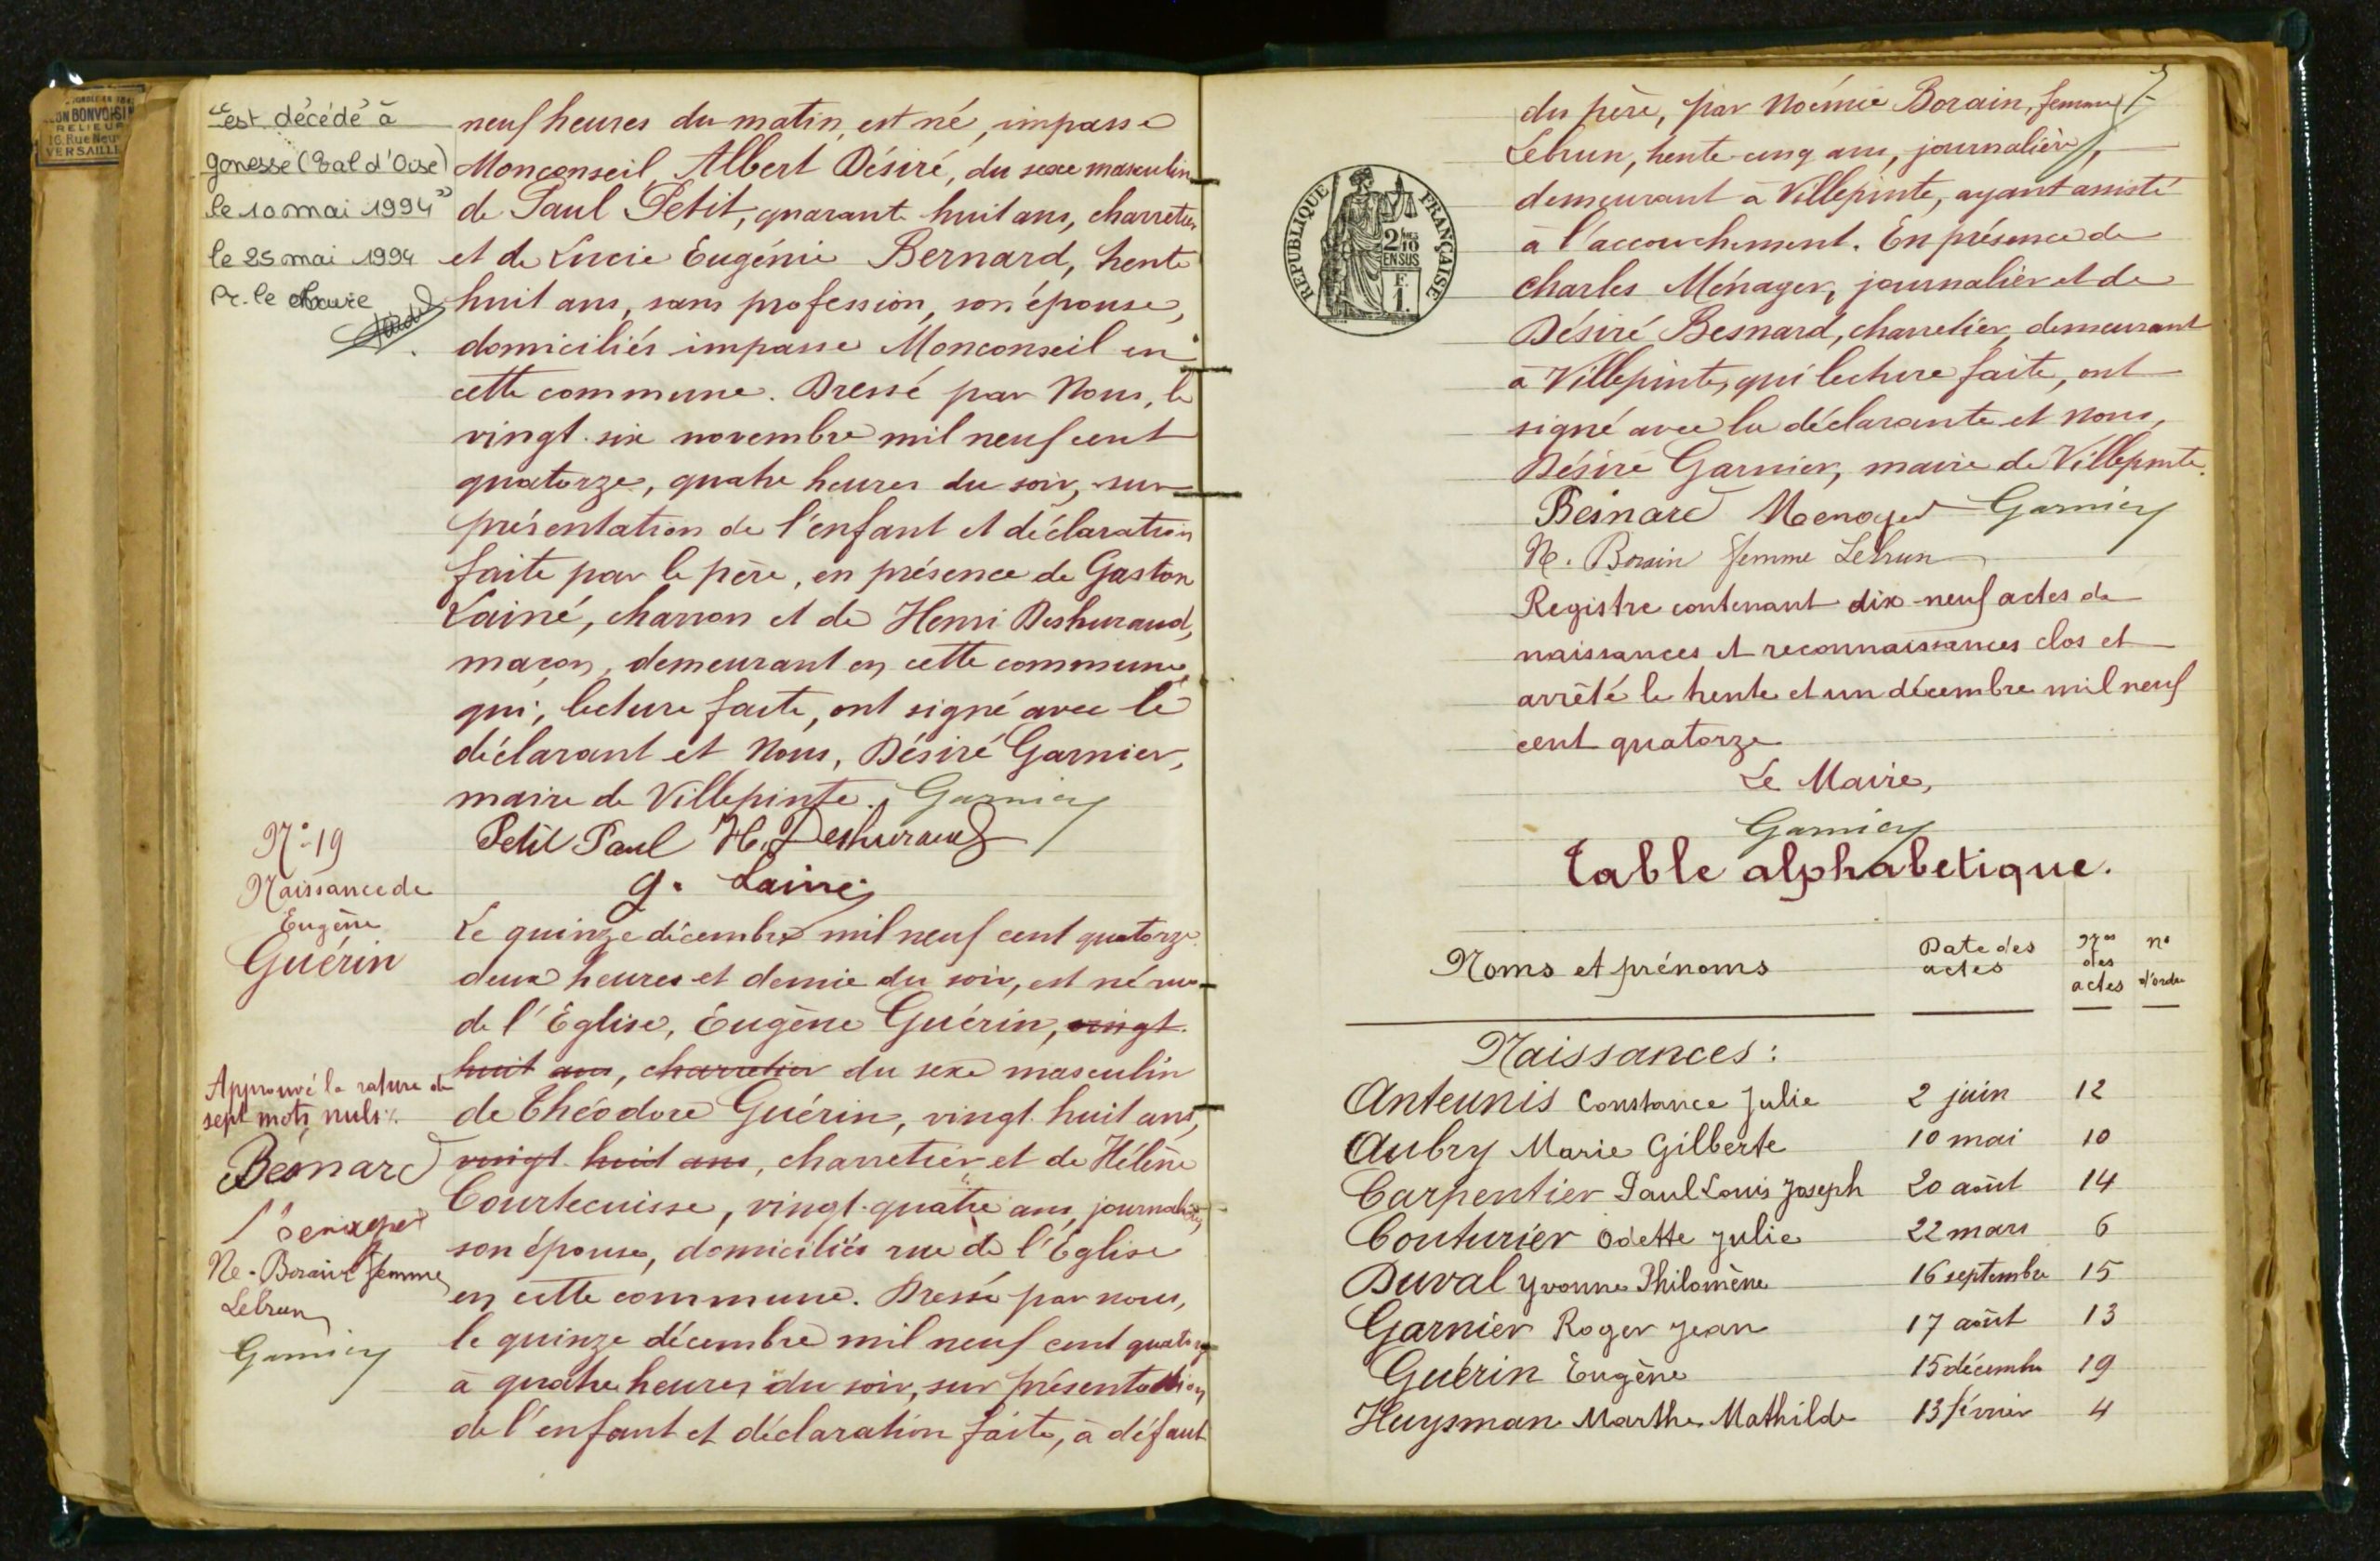 RELIEUR
16. Rue Neuve
VERSAILLES
"est décédé à
gonesse (Val d'Oise)
le 10 mai 1994"
le 25 mai 1994
Pr. le Maire
neuf heures du matin, est né, impasse
Monconseil, Albert Désiré, du sexe masculin
de Paul Petit, quarante huit ans, charretier
et de Lucie Eugénie Bernard, trente
huit ans, sans profession, son épouse,
domiciliés impasse Monconseil en
cette commune. Dressé par Nous, le
vingt-six novembre mil neuf cent
quatorze, quatre heures du soir, sur
présentation de l'enfant et déclaration
faite par le père, en présence de Gaston
Lainé, charron et de Henri Deshuraud,
maçon, demeurant en cette commune,
qui, lecture faite, ont signé avec le
déclarant et Nous, Désiré Garnier,
maire de Villepinte. Garnier
Petit Paul H. Deshuraud
G. Lainé
N° 19
Naissance de
Eugène
Guérin
Le quinze décembre mil neuf cent quatorze
deux heures et demie du soir, est né rue
de l'Eglise, Eugène Guérin, vingt
huit ans, charretier du sexe masculin
de Théodore Guérin, vingt-huit ans,
vingt huit ans, charretier et de Hélène
Courtecuisse, vingt-quatre ans, journalière,
son épouse, domiciliés rue de l'Eglise
en cette commune. Dressé par nous,
le quinze décembre mil neuf cent quatorze
à quatre heures du soir, sur présentation
de l'enfant et déclaration faite, à défaut
Approuvé la rature de
sept mots nuls
Besnard
Menager
Ne. Borain femme
Lebrun
Garnier
du père, par Noémie Borain, femme
Lebrun, trente-cinq ans, journalière,
demeurant à Villepinte, ayant assisté
à l'accouchement. En présence de
Charles Ménager, journalier et de
Désiré Besnard, charretier, demeurant
à Villepinte, qui lecture faite, ont
signé avec la déclarante et nous,
Désiré Garnier, maire de Villepinte.
Besnard Menager Garnier
Ne. Borain femme Lebrun
REPUBLIQUE FRANÇAISE
2/10
EN SUS
F.
1.
Registre contenant dix-neuf actes de
naissances et reconnaissances clos et
arrêté le trente et un décembre mil neuf
cent quatorze
Le Maire,
Garnier
Table alphabetique.
Noms et prénoms Date des actes Nos des actes n° d'ordre
Naissances :
Anteunis Constance Julie 2 juin 12
Aubry Marie Gilberte 10 mai 10
Carpentier Paul Louis Joseph 20 août 14
Couturier Odette Julie 22 mars 6
Duval Yvonne Philomène 16 septembre 15
Garnier Roger Jean 17 août 13
Guérin Eugène 15 décembre 19
Huysman Marthe Mathilde 13 février 4